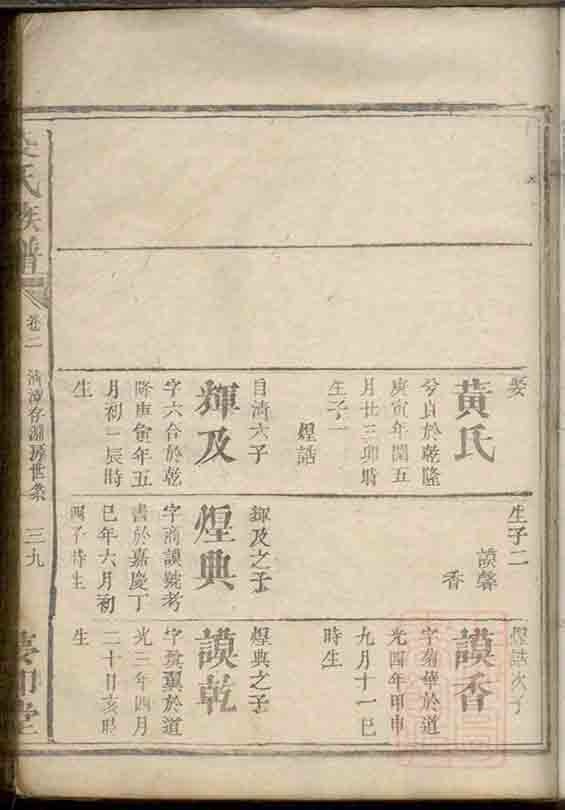 娶
黃氏
兮貞於乾隆
庚寅年閏五
月廿三卯時
生子一
煌話
輝及
字六合於乾
隆庚寅年五
月初一辰時
生
生子二
謨馨
香
輝及之子
煌典
字商謨號考
書於嘉慶丁
巳年六月初
子時生
煌話次子
謨香
字菊華於道
光四年甲申
九月十一巳
時生
煌典之子
謨乾
翼於道
光三年四月
二十日亥時
生
氏族譜
卷二
房世系
三九
堂